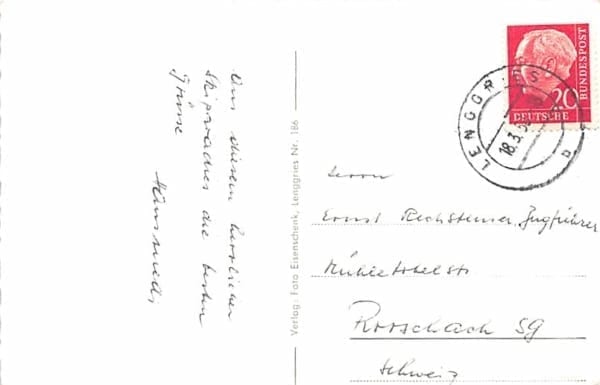 Aus diesem herrlichen
Skiparadies die besten
Grüsse
Verlag: Foto Eisenschenk, Lenggries Nr. 186
DEUTSCHE
BUNDESPOST
20
LENGGRIES
18.3.5
b
Herrn
Ernst Rechsteiner, Zugführer
Rorschach SG
Schweiz